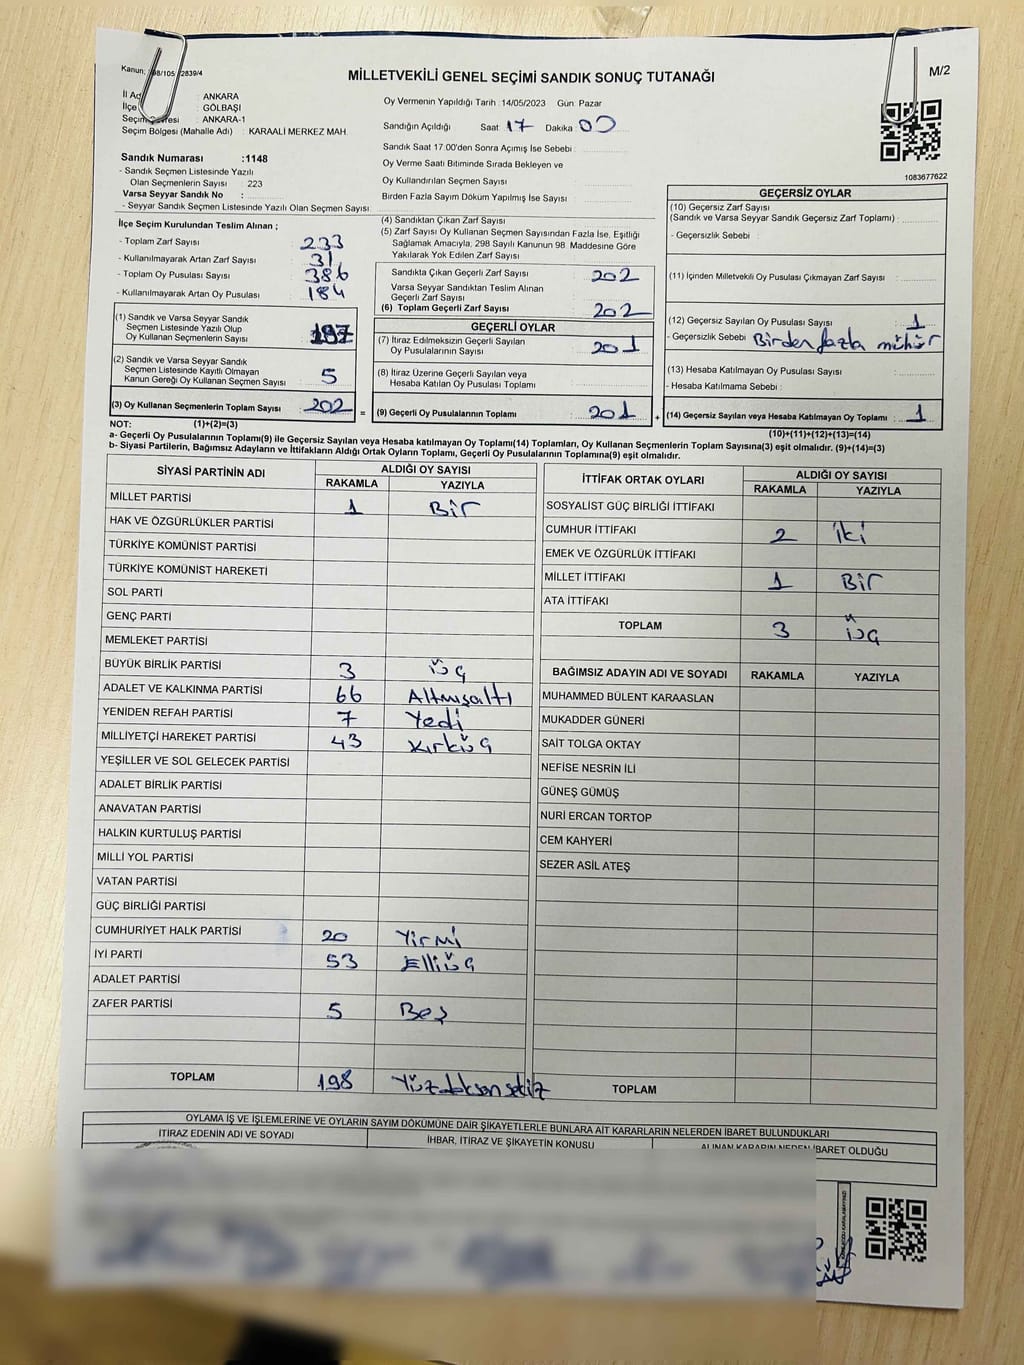 Kanun; 98/105 2839/4
MİLLETVEKİLİ GENEL SEÇİMİ SANDIK SONUÇ TUTANAĞI
M/2
İl Ad : ANKARA
İlçe : GÖLBAŞI
Seçim Çevresi : ANKARA-1
Seçim Bölgesi (Mahalle Adı) : KARAALİ MERKEZ MAH.
Sandık Numarası :1148
- Sandık Seçmen Listesinde Yazılı
Olan Seçmenlerin Sayısı : 223
Varsa Seyyar Sandık No :
- Seyyar Sandık Seçmen Listesinde Yazılı Olan Seçmen Sayısı
Oy Vermenin Yapıldığı Tarih :14/05/2023 Gün: Pazar
Sandığın Açıldığı Saat: 17 Dakika: 00
Sandık Saat 17.00'den Sonra Açılmış İse Sebebi :
Oy Verme Saati Bitiminde Sırada Bekleyen ve
Oy Kullandırılan Seçmen Sayısı
Birden Fazla Sayım Döküm Yapılmış İse Sayısı
1083677622
İlçe Seçim Kurulundan Teslim Alınan ;
- Toplam Zarf Sayısı : 233
- Kullanılmayarak Artan Zarf Sayısı : 31
- Toplam Oy Pusulası Sayısı : 386
- Kullanılmayarak Artan Oy Pusulası : 184
(1) Sandık ve Varsa Seyyar Sandık
Seçmen Listesinde Yazılı Olup
Oy Kullanan Seçmenlerin Sayısı 197
(2) Sandık ve Varsa Seyyar Sandık
Seçmen Listesinde Kayıtlı Olmayan
Kanun Gereği Oy Kullanan Seçmen Sayısı 5
(3) Oy Kullanan Seçmenlerin Toplam Sayısı 202
(4) Sandıktan Çıkan Zarf Sayısı
(5) Zarf Sayısı Oy Kullanan Seçmen Sayısından Fazla İse, Eşitliği
Sağlamak Amacıyla, 298 Sayılı Kanunun 98. Maddesine Göre
Yakılarak Yok Edilen Zarf Sayısı
Sandıkta Çıkan Geçerli Zarf Sayısı : 202
Varsa Seyyar Sandıktan Teslim Alınan
Geçerli Zarf Sayısı
(6) Toplam Geçerli Zarf Sayısı : 202
GEÇERLİ OYLAR
(7) İtiraz Edilmeksizin Geçerli Sayılan
Oy Pusulalarının Sayısı : 201
(8) İtiraz Üzerine Geçerli Sayılan veya
Hesaba Katılan Oy Pusulası Toplamı
= (9) Geçerli Oy Pusulalarının Toplamı : 201
GEÇERSİZ OYLAR
(10) Geçersiz Zarf Sayısı
(Sandık ve Varsa Seyyar Sandık Geçersiz Zarf Toplamı) :
- Geçersizlik Sebebi :
(11) İçinden Milletvekili Oy Pusulası Çıkmayan Zarf Sayısı
(12) Geçersiz Sayılan Oy Pusulası Sayısı : 1
- Geçersizlik Sebebi : Birden fazla mühür
(13) Hesaba Katılmayan Oy Pusulası Sayısı
- Hesaba Katılmama Sebebi :
+ (14) Geçersiz Sayılan veya Hesaba Katılmayan Oy Toplamı : 1
NOT: (1)+(2)=(3)
(10)+(11)+(12)+(13)=(14)
a- Geçerli Oy Pusulalarının Toplamı(9) ile Geçersiz Sayılan veya Hesaba katılmayan Oy Toplamı(14) Toplamları, Oy Kullanan Seçmenlerin Toplam Sayısına(3) eşit olmalıdır. (9)+(14)=(3)
b- Siyasi Partilerin, Bağımsız Adayların ve İttifakların Aldığı Ortak Oyların Toplamı, Geçerli Oy Pusulalarının Toplamına(9) eşit olmalıdır.
SİYASİ PARTİNİN ADI ALDIĞI OY SAYISI
RAKAMLA YAZIYLA
MİLLET PARTİSİ 1 Bir
HAK VE ÖZGÜRLÜKLER PARTİSİ
TÜRKİYE KOMÜNİST PARTİSİ
TÜRKİYE KOMÜNİST HAREKETİ
SOL PARTİ
GENÇ PARTİ
MEMLEKET PARTİSİ
BÜYÜK BİRLİK PARTİSİ 3 üç
ADALET VE KALKINMA PARTİSİ 66 Altmışaltı
YENİDEN REFAH PARTİSİ 7 Yedi
MİLLİYETÇİ HAREKET PARTİSİ 43 Kırküç
YEŞİLLER VE SOL GELECEK PARTİSİ
ADALET BİRLİK PARTİSİ
ANAVATAN PARTİSİ
HALKIN KURTULUŞ PARTİSİ
MİLLİ YOL PARTİSİ
VATAN PARTİSİ
GÜÇ BİRLİĞİ PARTİSİ
CUMHURİYET HALK PARTİSİ 20 Yirmi
İYİ PARTİ 53 Elliüç
ADALET PARTİSİ
ZAFER PARTİSİ 5 Beş
TOPLAM 198 Yüzdoksansekiz
İTTİFAK ORTAK OYLARI ALDIĞI OY SAYISI
RAKAMLA YAZIYLA
SOSYALİST GÜÇ BİRLİĞİ İTTİFAKI
CUMHUR İTTİFAKI 2 iki
EMEK VE ÖZGÜRLÜK İTTİFAKI
MİLLET İTTİFAKI 1 Bir
ATA İTTİFAKI
TOPLAM 3 üç
BAĞIMSIZ ADAYIN ADI VE SOYADI RAKAMLA YAZIYLA
MUHAMMED BÜLENT KARAASLAN
MUKADDER GÜNERİ
SAİT TOLGA OKTAY
NEFİSE NESRİN İLİ
GÜNEŞ GÜMÜŞ
NURİ ERCAN TORTOP
CEM KAHYERİ
SEZER ASİL ATEŞ
TOPLAM
OYLAMA İŞ VE İŞLEMLERİNE VE OYLARIN SAYIM DÖKÜMÜNE DAİR ŞİKAYETLERLE BUNLARA AİT KARARLARIN NELERDEN İBARET BULUNDUKLARI
İTİRAZ EDENİN ADI VE SOYADI İHBAR, İTİRAZ VE ŞİKAYETİN KONUSU ALINAN KARARIN NEDEN İBARET OLDUĞU